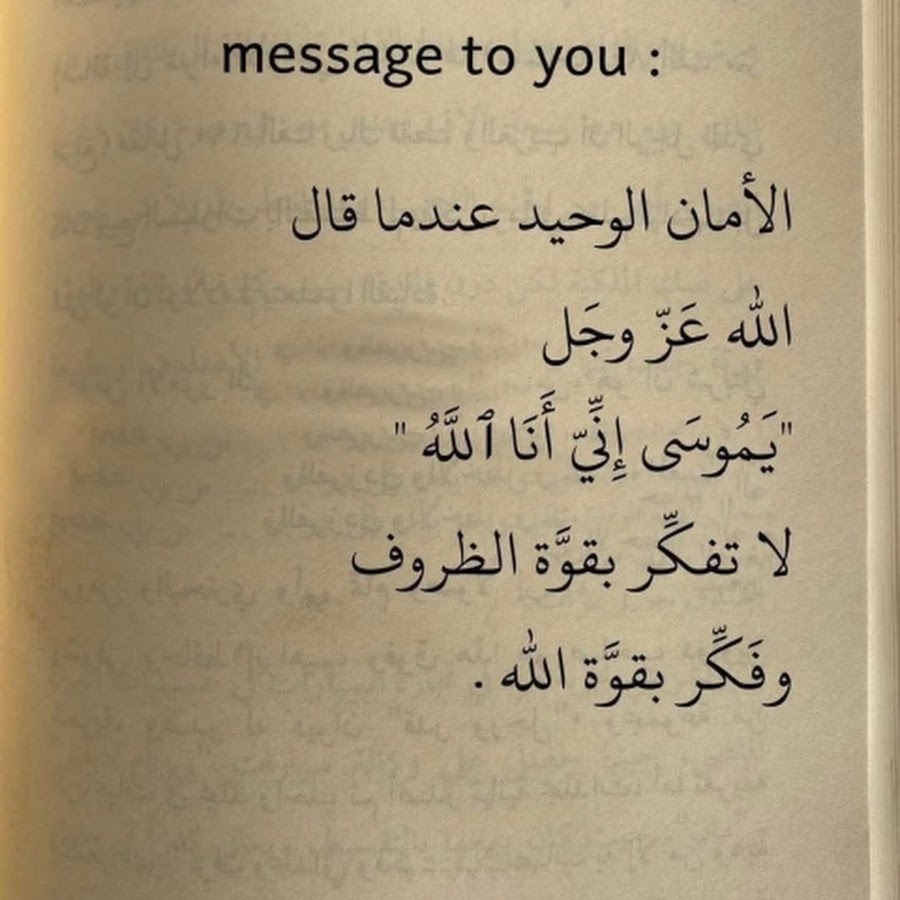 message to you :
الأمان الوحيد عندما قال
الله عَزّ وجَل
"يَمُوسَى إِنِّيّ أَنَا ٱللَّهُ "
لا تفكِّر بقوَّة الظروف
وفَكِّر بقوَّة الله .